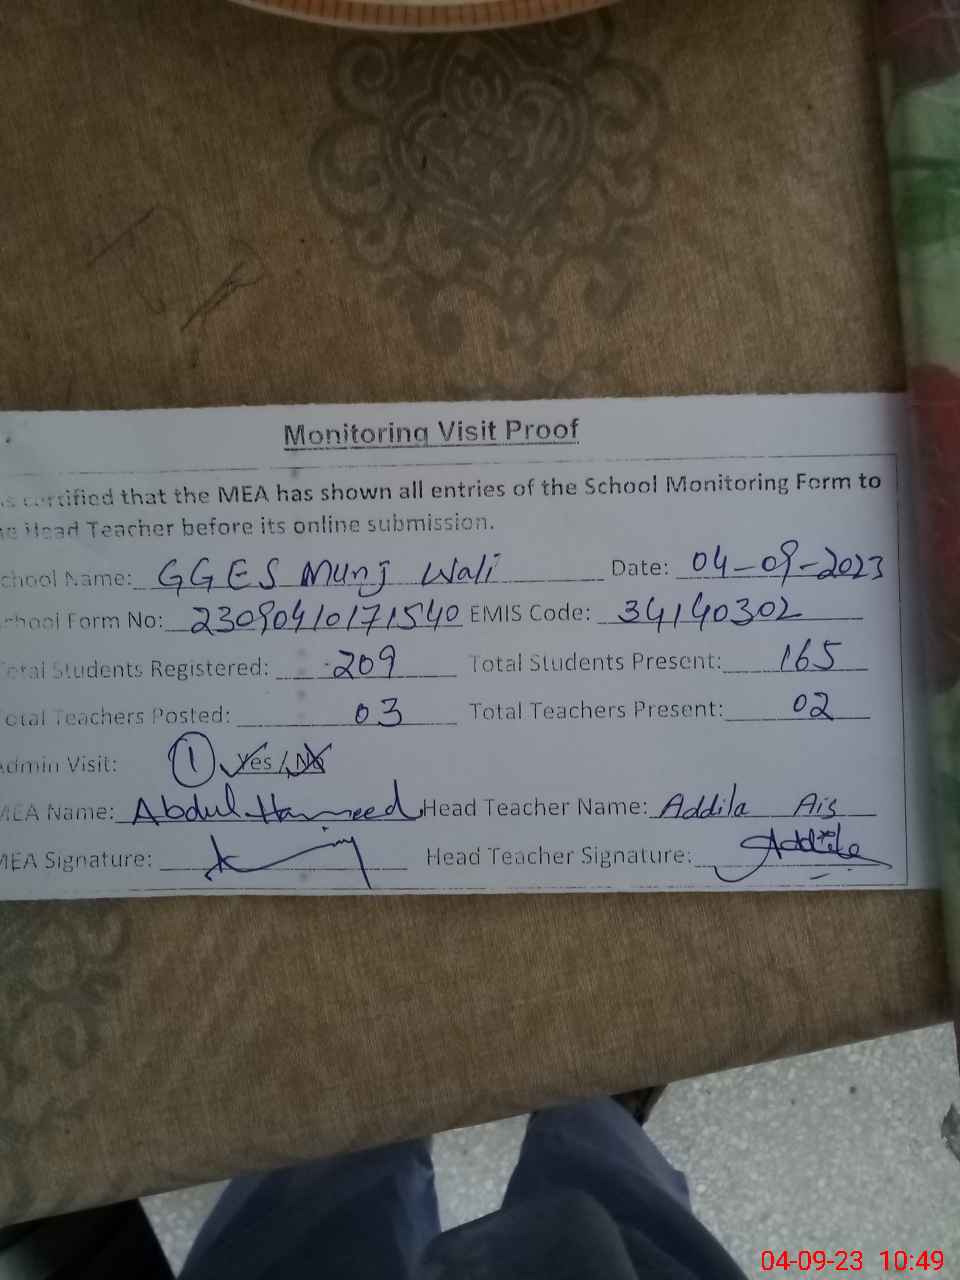 Monitoring Visit Proof
is certified that the MEA has shown all entries of the School Monitoring Form to
he Head Teacher before its online submission.
chool Name: GGES Munj Wali Date: 04-09-2023
chool Form No: 23090410171540 EMIS Code: 34140302
otal Students Registered: 209 Total Students Present: 165
otal Teachers Posted: 03 Total Teachers Present: 02
Admin Visit: 1 Yes / No
MEA Name: Abdul Hameed Head Teacher Name: Addila Ais
MEA Signature: Head Teacher Signature: Addila
04-09-23 10:49